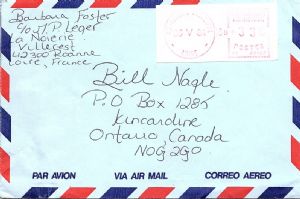 Barbara Foster
c/o J.P. Leger
La Noierie
Villerest
42300 Roanne
Loire, France
Bill Nagle
P.O Box 1285
Kincardine
Ontario, Canada
N0G 2G0
PAR AVION VIA AIR MAIL CORREO AEREO